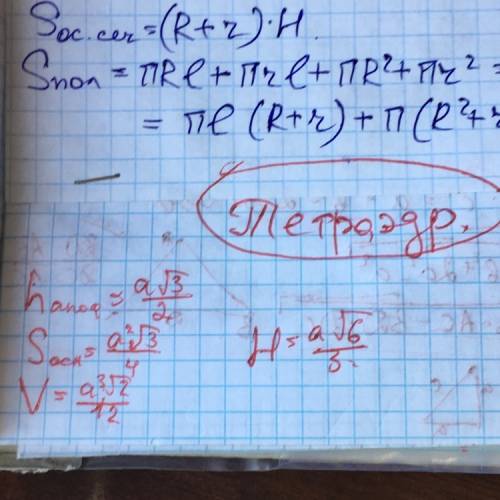 Sос.сеч = (R+r)·H.
Sпол = πRl + πrl + πR² + πr² =
= πl (R+r) + π(R²+r
Тетраэдр.
hапоф = a√3/2
Sосн = a²√3/4
H = a√6/3
V = a³√2/12